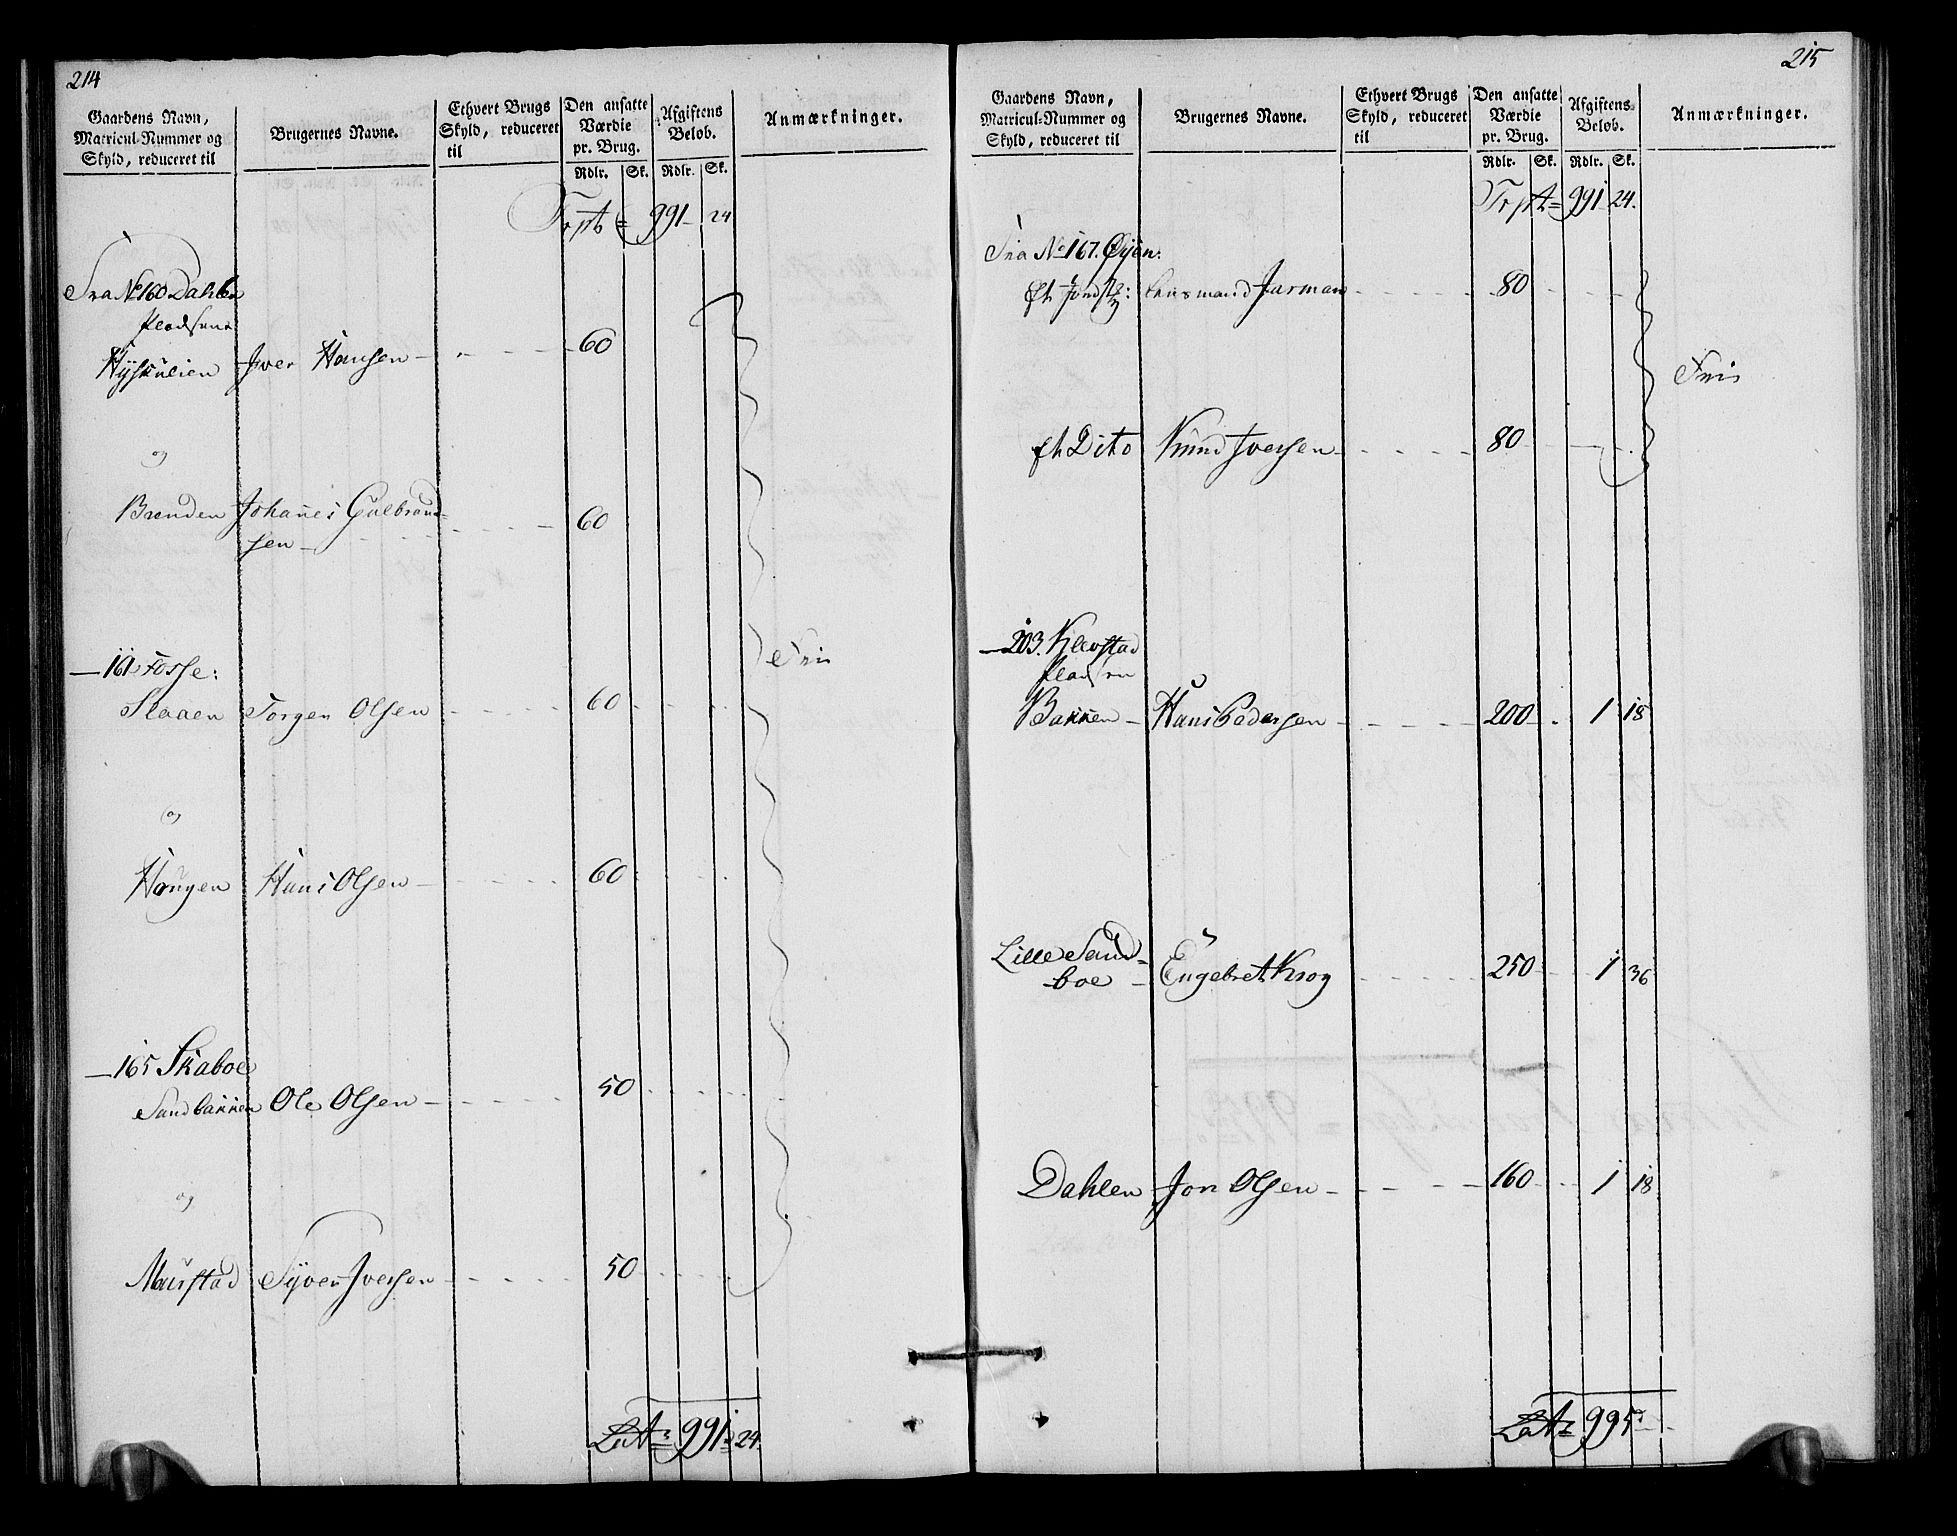 214
Gaardens Navn,
Matricul-Nummer og
Skyld, reduceret til
Brugernes Navne.
Ethvert Brugs
Skyld, reduceret
til
Den ansatte
Værdie
pr. Brug.
Afgiftens
Beløb.
Anmærkninger.
Rdlr. Sk. Rdlr. Sk.
Trpt = 991 24
Fra No 160 Dahlen
Pladsene
Iver Hansen 60
og
Brenden Johanes Gulbrand-
sen 60
161 Fosse:
Fri
Slaaen Torgen Olsen 60
og
Haugen Hans Olsen 60
165 Skaboe
Sandbakken Ole Olsen 50
og
Maurstad Syver Iversen 50
Lat = 991 24
215
Gaardens Navn,
Matricul-Nummer og
Skyld, reduceret til
Brugernes Navne.
Ethvert Brugs
Skyld, reduceret
til
Den ansatte
Værdie
pr. Brug.
Afgiftens
Beløb.
Anmærkninger.
Rdlr. Sk. Rdlr. Sk.
Trpt = 991 24.
Fra No 167. Øyen:
Lensmand Jarman 80
Fri
et Dito Knud Iversen 80
203. Klevstad
Pladsen
Bakken Hans Pedersen 200 1 18
Lille Sand-
boe Engebret Krog 250 1 36
Dahlen Jon Olsen 160 1 18
Lat = 995